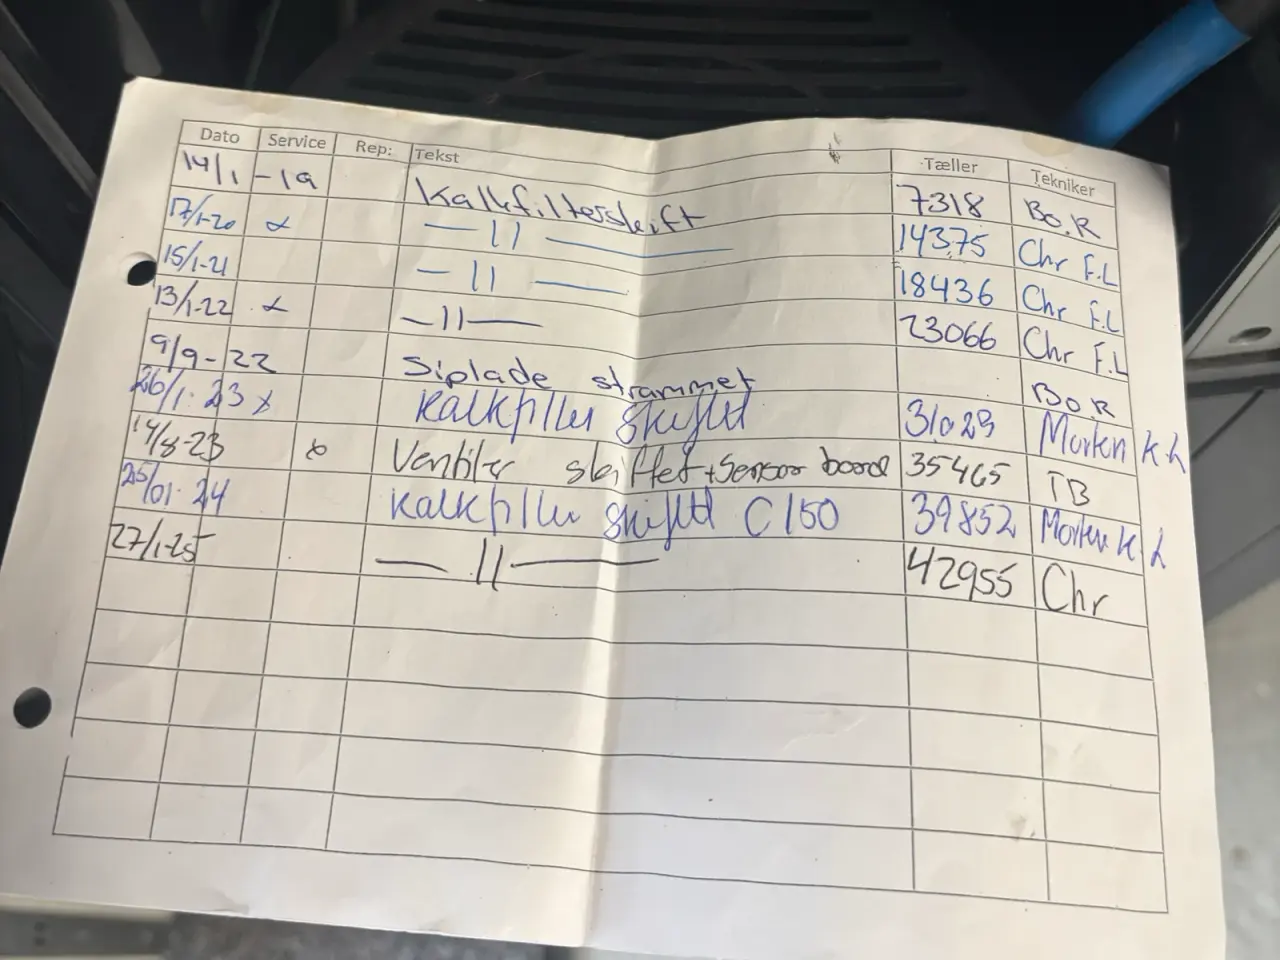 Dato Service Rep: Tekst Tæller Tekniker
14/1 -19 Kalkfilterskift 7318 Bo.R
17/1-20 x —11— 14375 Chr F.L
15/1-21 —11— 18436 Chr F.L
13/1-22 x —11— 23066 Chr F.L
9/9-22 Siplade strammet Bo.R
26/1-23 x Kalkfilter skiftet 31023 Morten K.L
14/8-23 x Ventiler skiftet + Sensor board 35465 TB
25/01-24 Kalkfilter skiftet C150 39852 Morten K.L
27/1-25 —11— 42955 Chr